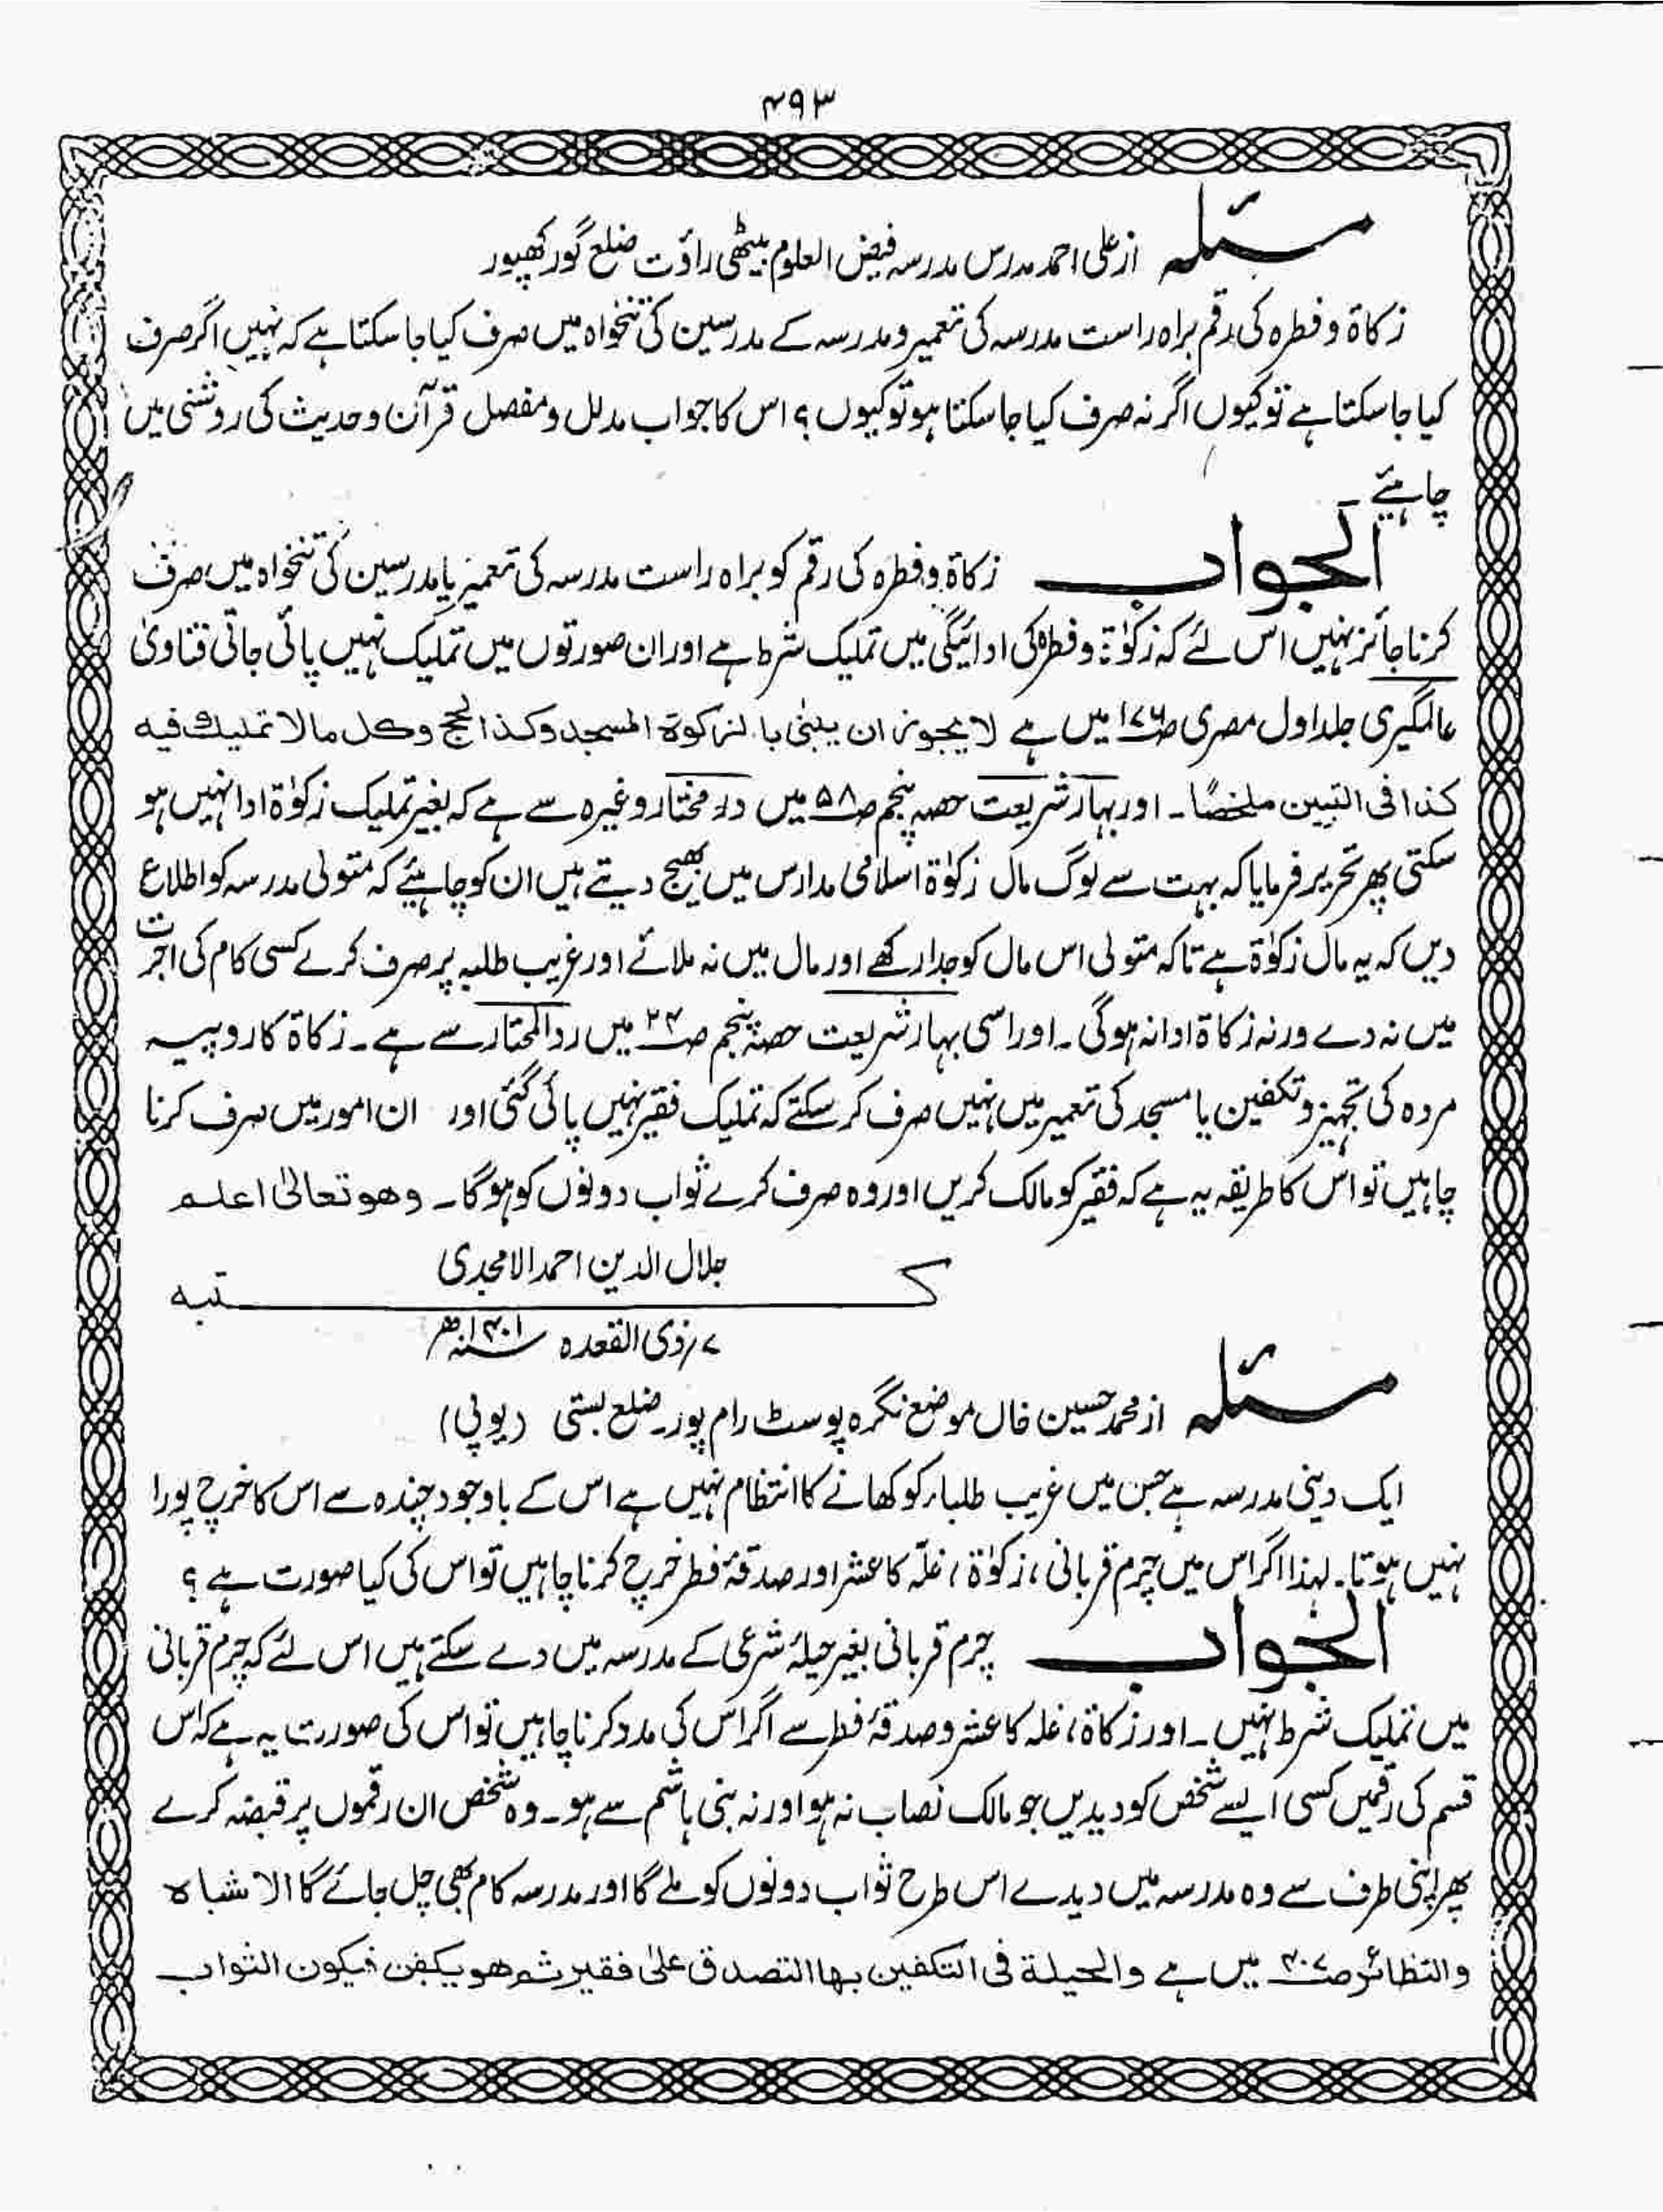 ۴۹۳
مسئلہ از علی احمد مدرس مدرسہ فیض العلوم بیٹھی راؤت ضلع گورکھپور
زکاۃ و فطرہ کی رقم براہ راست مدرسہ کی تعمیر و مدرسہ کے مدرسین کی تنخواہ میں صرف کیا جا سکتا ہے کہ نہیں اگر صرف
کیا جا سکتا ہے تو کیوں اگر نہ صرف کیا جا سکتا ہو تو کیوں؟ اس کا جواب مدلل و مفصل قرآن و حدیث کی روشنی میں
چاہئے ۔
الجواب زکاۃ و فطرہ کی رقم کو براہ راست مدرسہ کی تعمیر یا مدرسین کی تنخواہ میں صرف
کرنا جائز نہیں اس لئے کہ زکوٰۃ و فطرہ کی ادائیگی میں تملیک شرط ہے اور ان صورتوں میں تملیک نہیں پائی جاتی فتاویٰ
عالمگیری جلد اول مصری ص۱۷۶ میں ہے لا یجوز ان یبنی بالزکوۃ المسجد وکذا الحج وکل مالا تملیك فیه
کذا فی التبیین ملخصًا۔ اور بہار شریعت حصہ پنجم ص۵۸ میں در مختار وغیرہ سے ہے کہ بغیر تملیک زکوٰۃ ادا نہیں ہو
سکتی پھر تحریر فرمایا کہ بہت سے لوگ مال زکوٰۃ اسلامی مدارس میں بھیج دیتے ہیں ان کو چاہیئے کہ متولی مدرسہ کو اطلاع
دیں کہ یہ مال زکوٰۃ ہے تاکہ متولی اس مال کو جدا رکھے اور مال میں نہ ملائے اور غریب طلبہ پر صرف کرے کسی کام کی اجرت
میں نہ دے ورنہ زکاۃ ادا نہ ہوگی۔ اور اسی بہار شریعت حصہ پنجم ص۲۴ میں رد المحتار سے ہے۔ زکاۃ کا روپیہ
مردہ کی تجہیز و تکفین یا مسجد کی تعمیر میں نہیں صرف کر سکتے کہ تملیک فقیر نہیں پائی گئی اور ان امور میں صرف کرنا
چاہیں تو اس کا طریقہ یہ ہے کہ فقیر کو مالک کریں اور وہ صرف کرے ثواب دونوں کو ہوگا۔ وھو تعالیٰ اعلم
جلال الدین احمد الامجدی
کتبہ
۷؍ ذی القعدہ سنہ ۱۴۰۱ھ
مسئلہ از محمد حسین خاں موضع نگرہ پوسٹ رام پور۔ ضلع بستی (یوپی)
ایک دینی مدرسہ ہے جس میں غریب طلباء کو کھانے کا انتظام نہیں ہے اس کے باوجود چندہ سے اس کا خرچ پورا
نہیں ہوتا۔ لہذا اگر اس میں چرم قربانی، زکوٰۃ، غلّہ کا عشر اور صدقۂ فطر خرچ کرنا چاہیں تو اس کی کیا صورت ہے؟
الجواب چرم قربانی بغیر حیلۂ شرعی کے مدرسہ میں دے سکتے ہیں اس لئے کہ چرم قربانی
میں تملیک شرط نہیں۔ اور زکاۃ، غلہ کا عشر و صدقۂ فطر سے اگر اس کی مدد کرنا چاہیں تو اس کی صورت یہ ہے کہ اس
قسم کی رقمیں کسی ایسے شخص کو دیدیں جو مالک نصاب نہ ہو اور نہ بنی ہاشم سے ہو۔ وہ شخص ان رقموں پر قبضہ کرے
پھر اپنی طرف سے وہ مدرسہ میں دیدے اس طرح ثواب دونوں کو ملے گا اور مدرسہ کام بھی چل جائے گا الاشباہ
والنظائر ص۴۰۷ میں ہے والحیلة فی التکفین بھا التصدق علیٰ فقیر ثم ھو یکفن فیکون الثواب